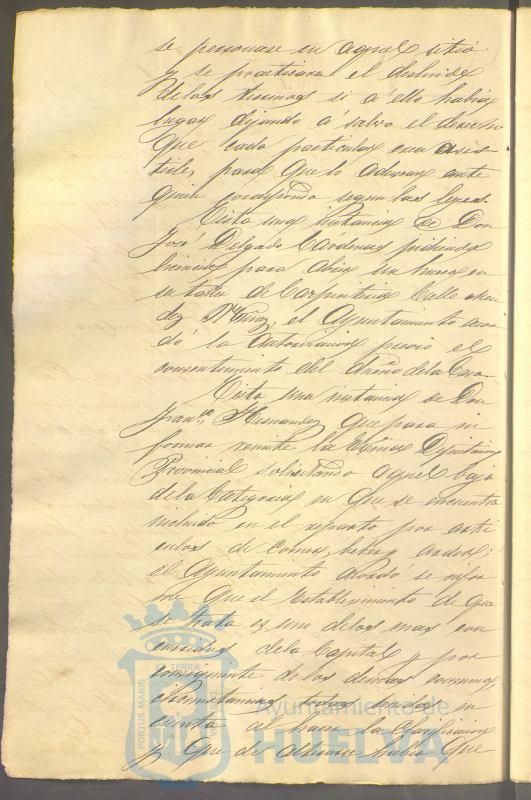 se personase en aquel sitio
y se practicara el deslinde
de los terrenos si á ello había
lugar dejando á salvo el derecho
que cada particular crea asis
tirle, para que lo aduzcan ante
quien corresponda segun las leyes.
Vista una instancia de Don
José Delgado Cardenas pidiendo
licencia para abrir un hueco en
su taller de Carpinteria Calle Men
dez Nuñez, el Ayuntamiento acor
dó la autorizacion previo el
consentimiento del dueño de la Casa.
Vista una instancia de Don
Franco Hernandez que para in
formar remite la Excma Diputacion
Provincial solicitando aquel baja
de la Categoria en que se encuentra
incluido en el reparto por arti
culos de comer, beber y arder;
el Ayuntamiento acordó se infor
me que el Establecimiento de que
se trata es uno de los mas con
curridos de la Capital y por
consiguiente de los demas consumos,
circunstancias todas tenidas en
cuenta al hacer la clasificacion
y que de alterarse habia que
PORTUS MARIS ET TERRÆ
Ayuntamiento de
HUELVA